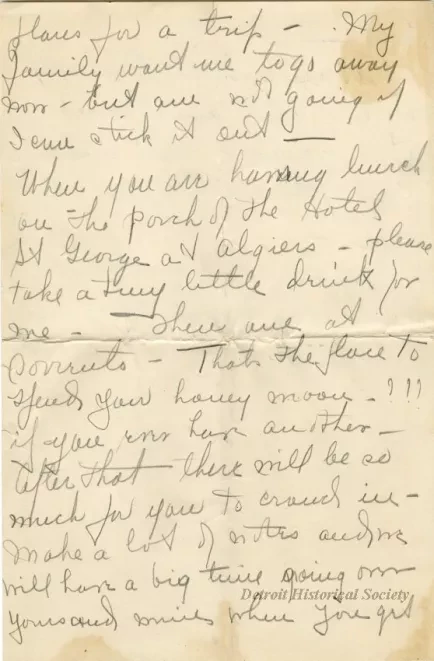 plans for a trip – My
family want me to go away
now – but am not going if
I can stick it out —
When you are having lunch
on the porch of the Hotel
St George at Algiers – please
take a tiny little drink for
me – Then one at
– That's the place to
spend your honey moon – !!!
if you ever have another –
After that there will be so
much for you to crowd in –
make a lot of notes and we
will have a big time going over
yours and mine when you get
Detroit Historical Society